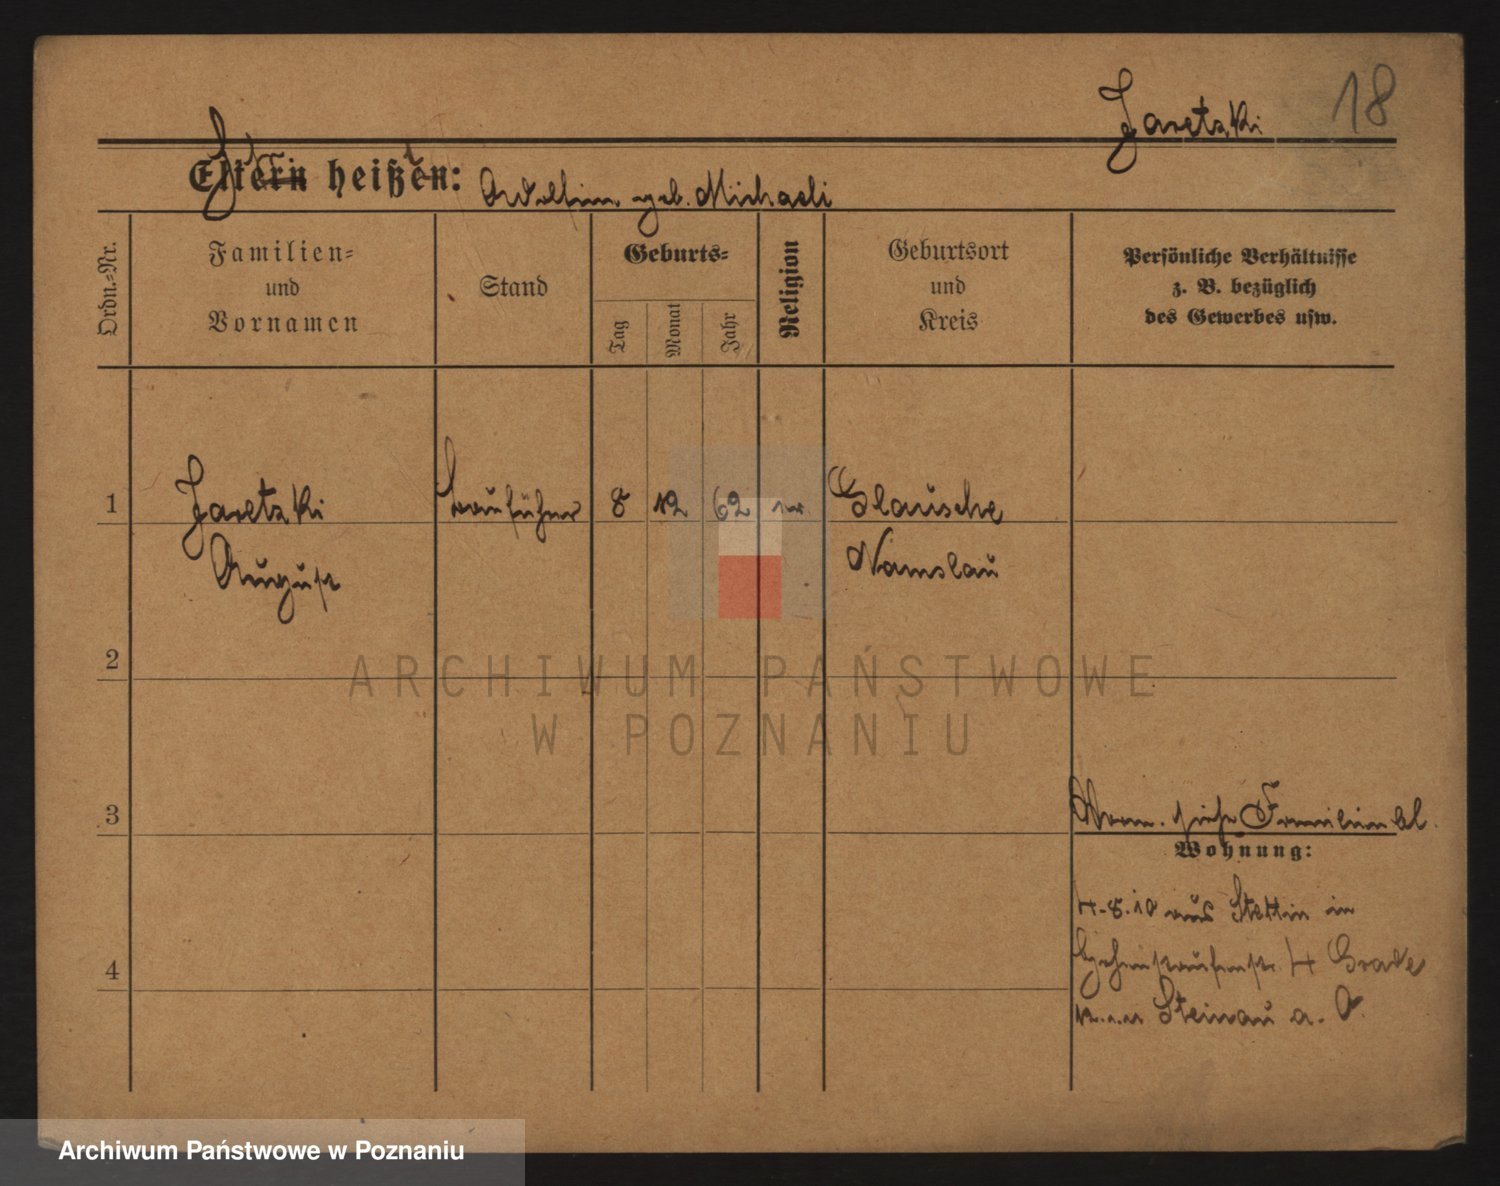 18
Jaretzki
Frau
Eltern heißt en:
geb. Michaeli
Ordn.=Nr.
Familien=
und
Vornamen
Stand
Geburts=
Tag
Monat
Jahr
Religion
Geburtsort
und
Kreis
Persönliche Verhältnisse
z. B. bezüglich
des Gewerbes usw.
1
Jaretzki
August
8
12
62
Glausche
Namslau
2
3
siehe Familienbl.
Wohnung:
4.8.10 aus Stettin in
4
4
Steinau a. O.
ARCHIWUM PAŃSTWOWE
W POZNANIU
Archiwum Państwowe w Poznaniu